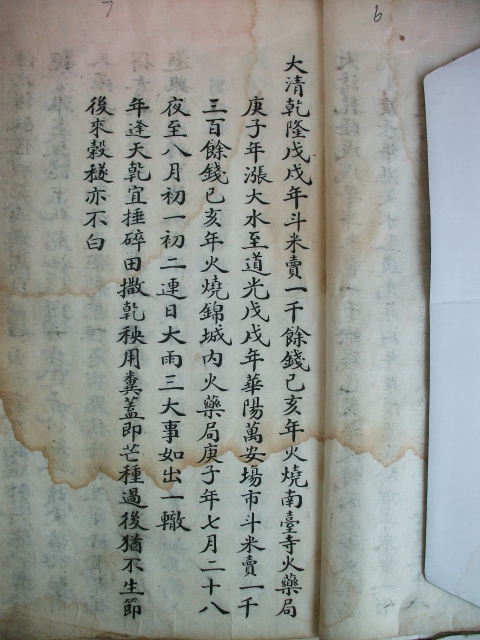 大清乾隆戊戌年斗米賣一千餘錢己亥年火燒南臺寺火藥局
庚子年漲大水至道光戊戌年華陽萬安場市斗米賣一千
三百餘錢己亥年火燒錦城內火藥局庚子年七月二十八
夜至八月初一初二連日大雨三大事如出一轍
年逢天乾宜捶碎田撒乾秧用糞蓋即芒種過後猶不生節
後來穀穟亦不白
7
6